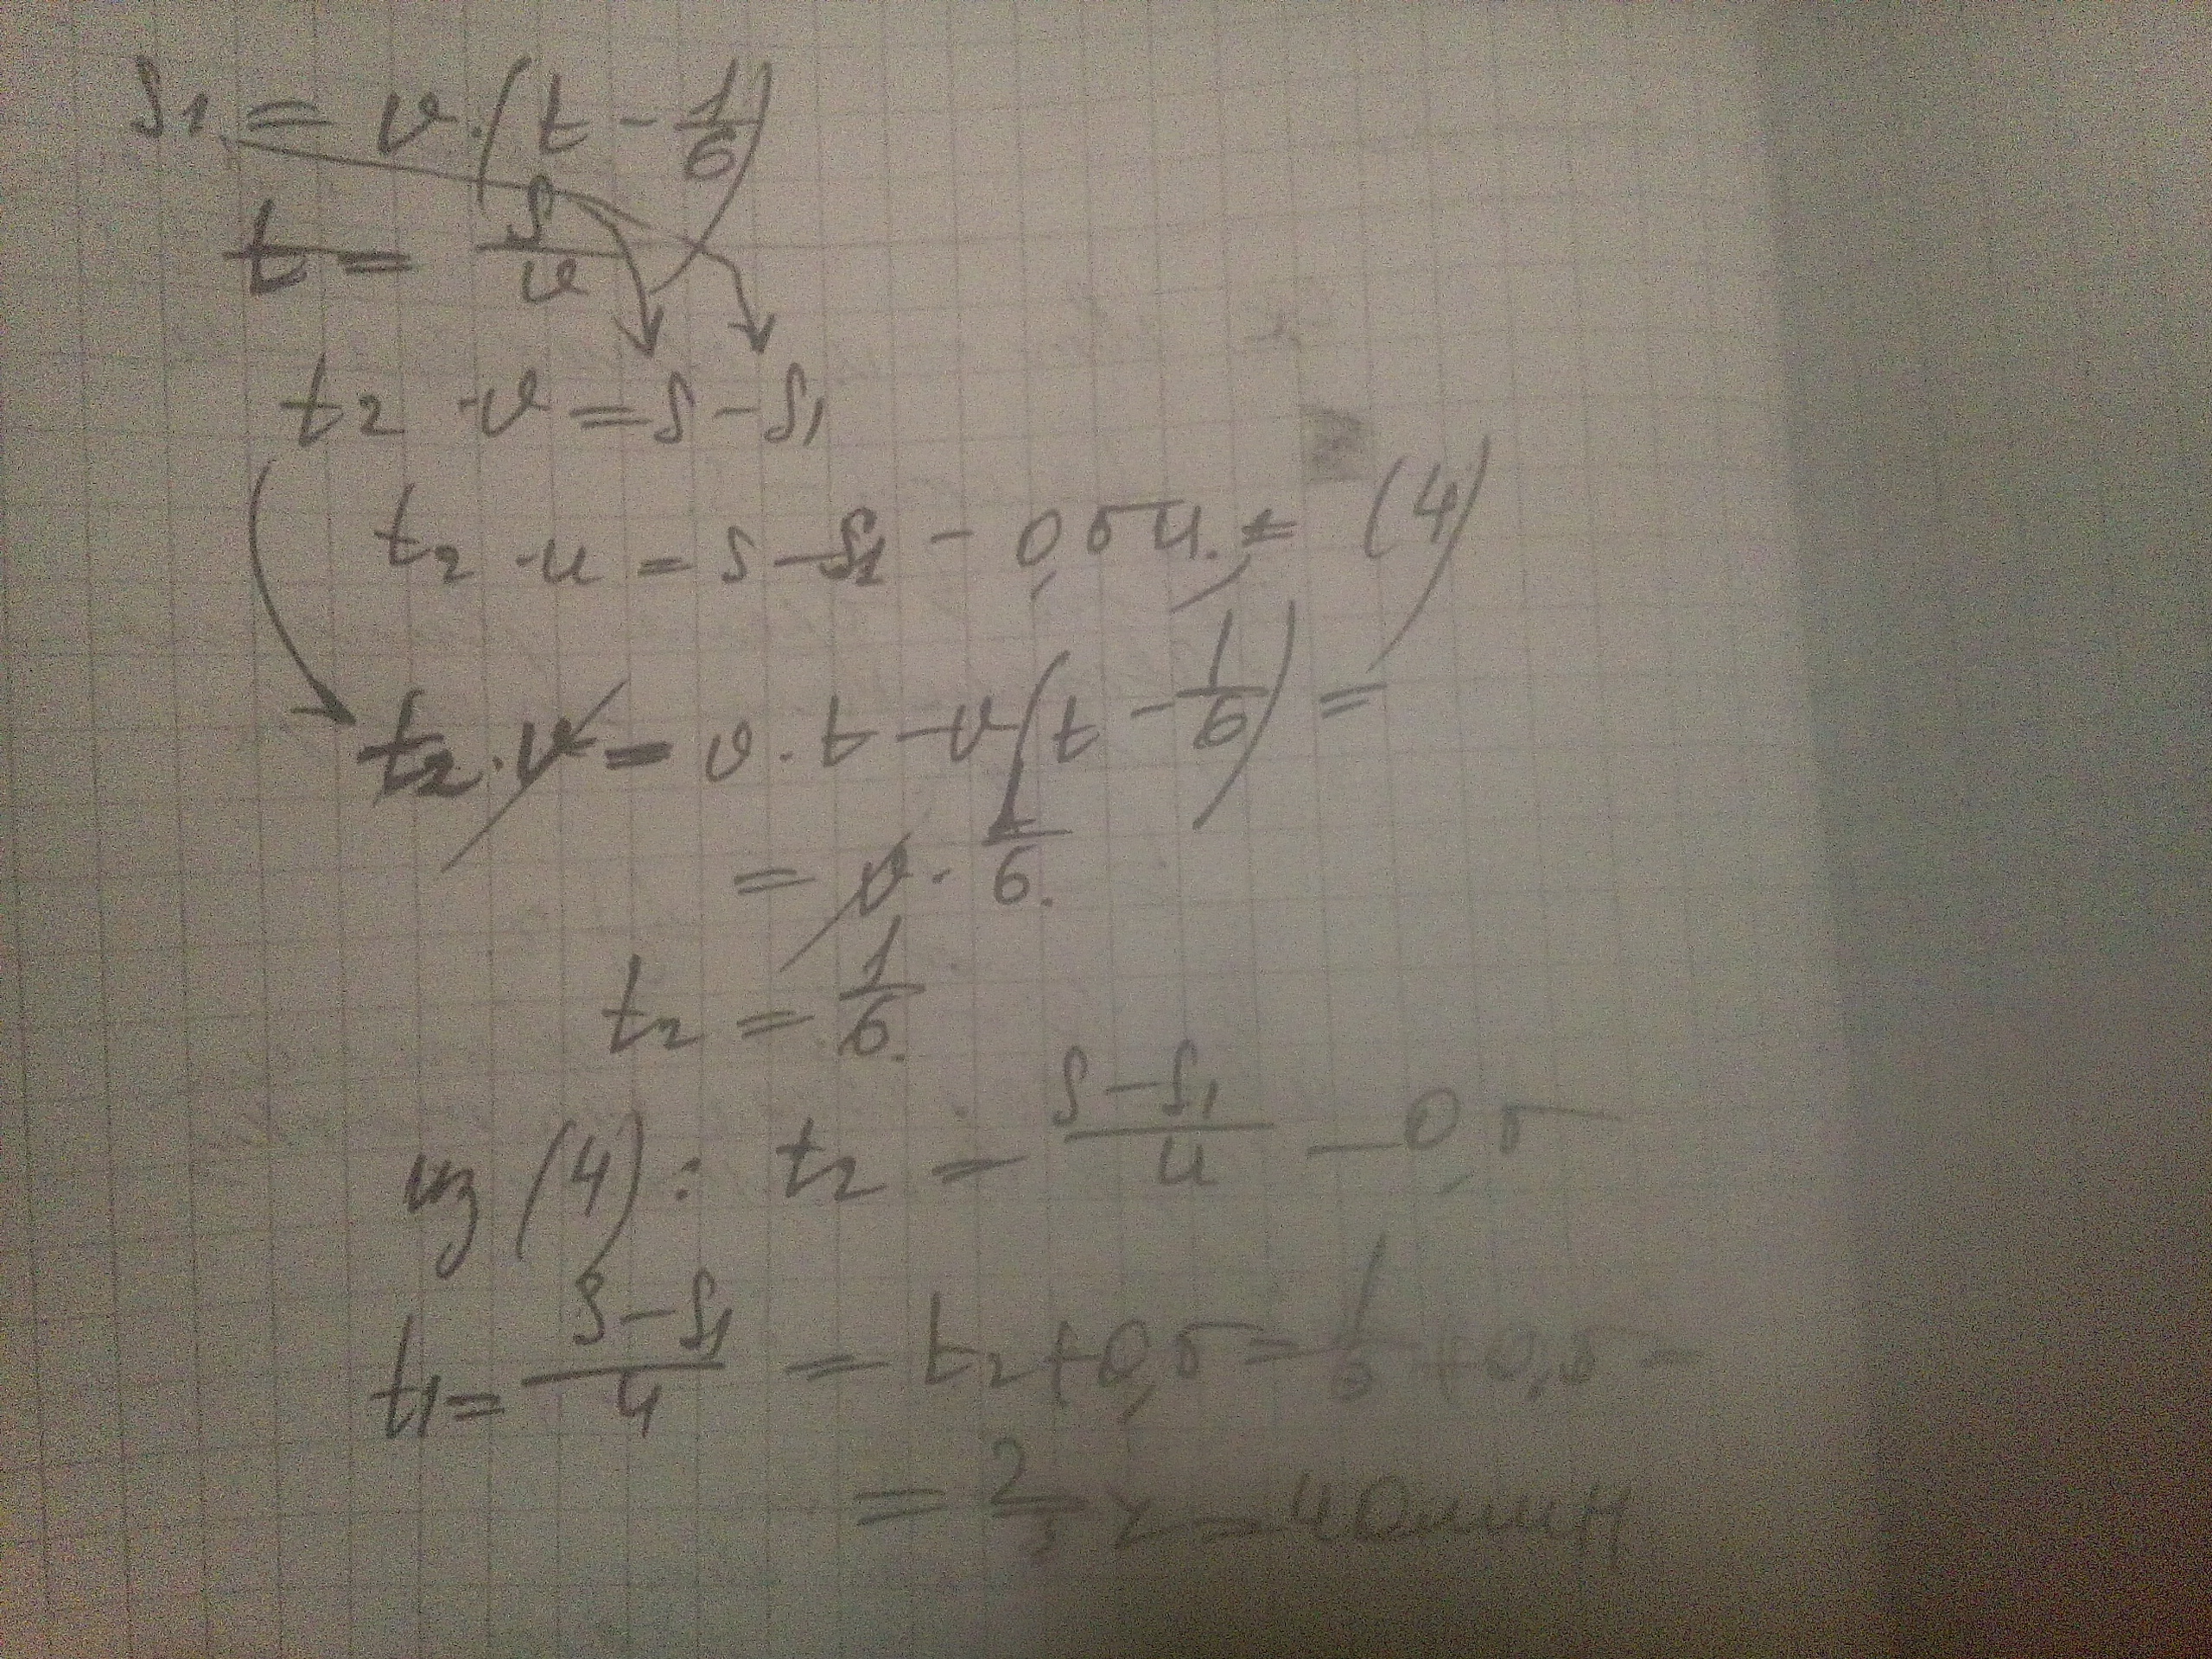 S1 = v·(t - 1/6)
t = S/v
t2 · v = S - S1
t2 · u = S - S1 - 0,5u. (4)
t2 · v = v · t - v(t - 1/6) =
= v · 1/6.
t2 = 1/6.
из (4): t2 = (S - S1)/u - 0,5
t1 = (S - S1)/u = t2 + 0,5 = 1/6 + 0,5 =
= 2/3 ч = 40 мин